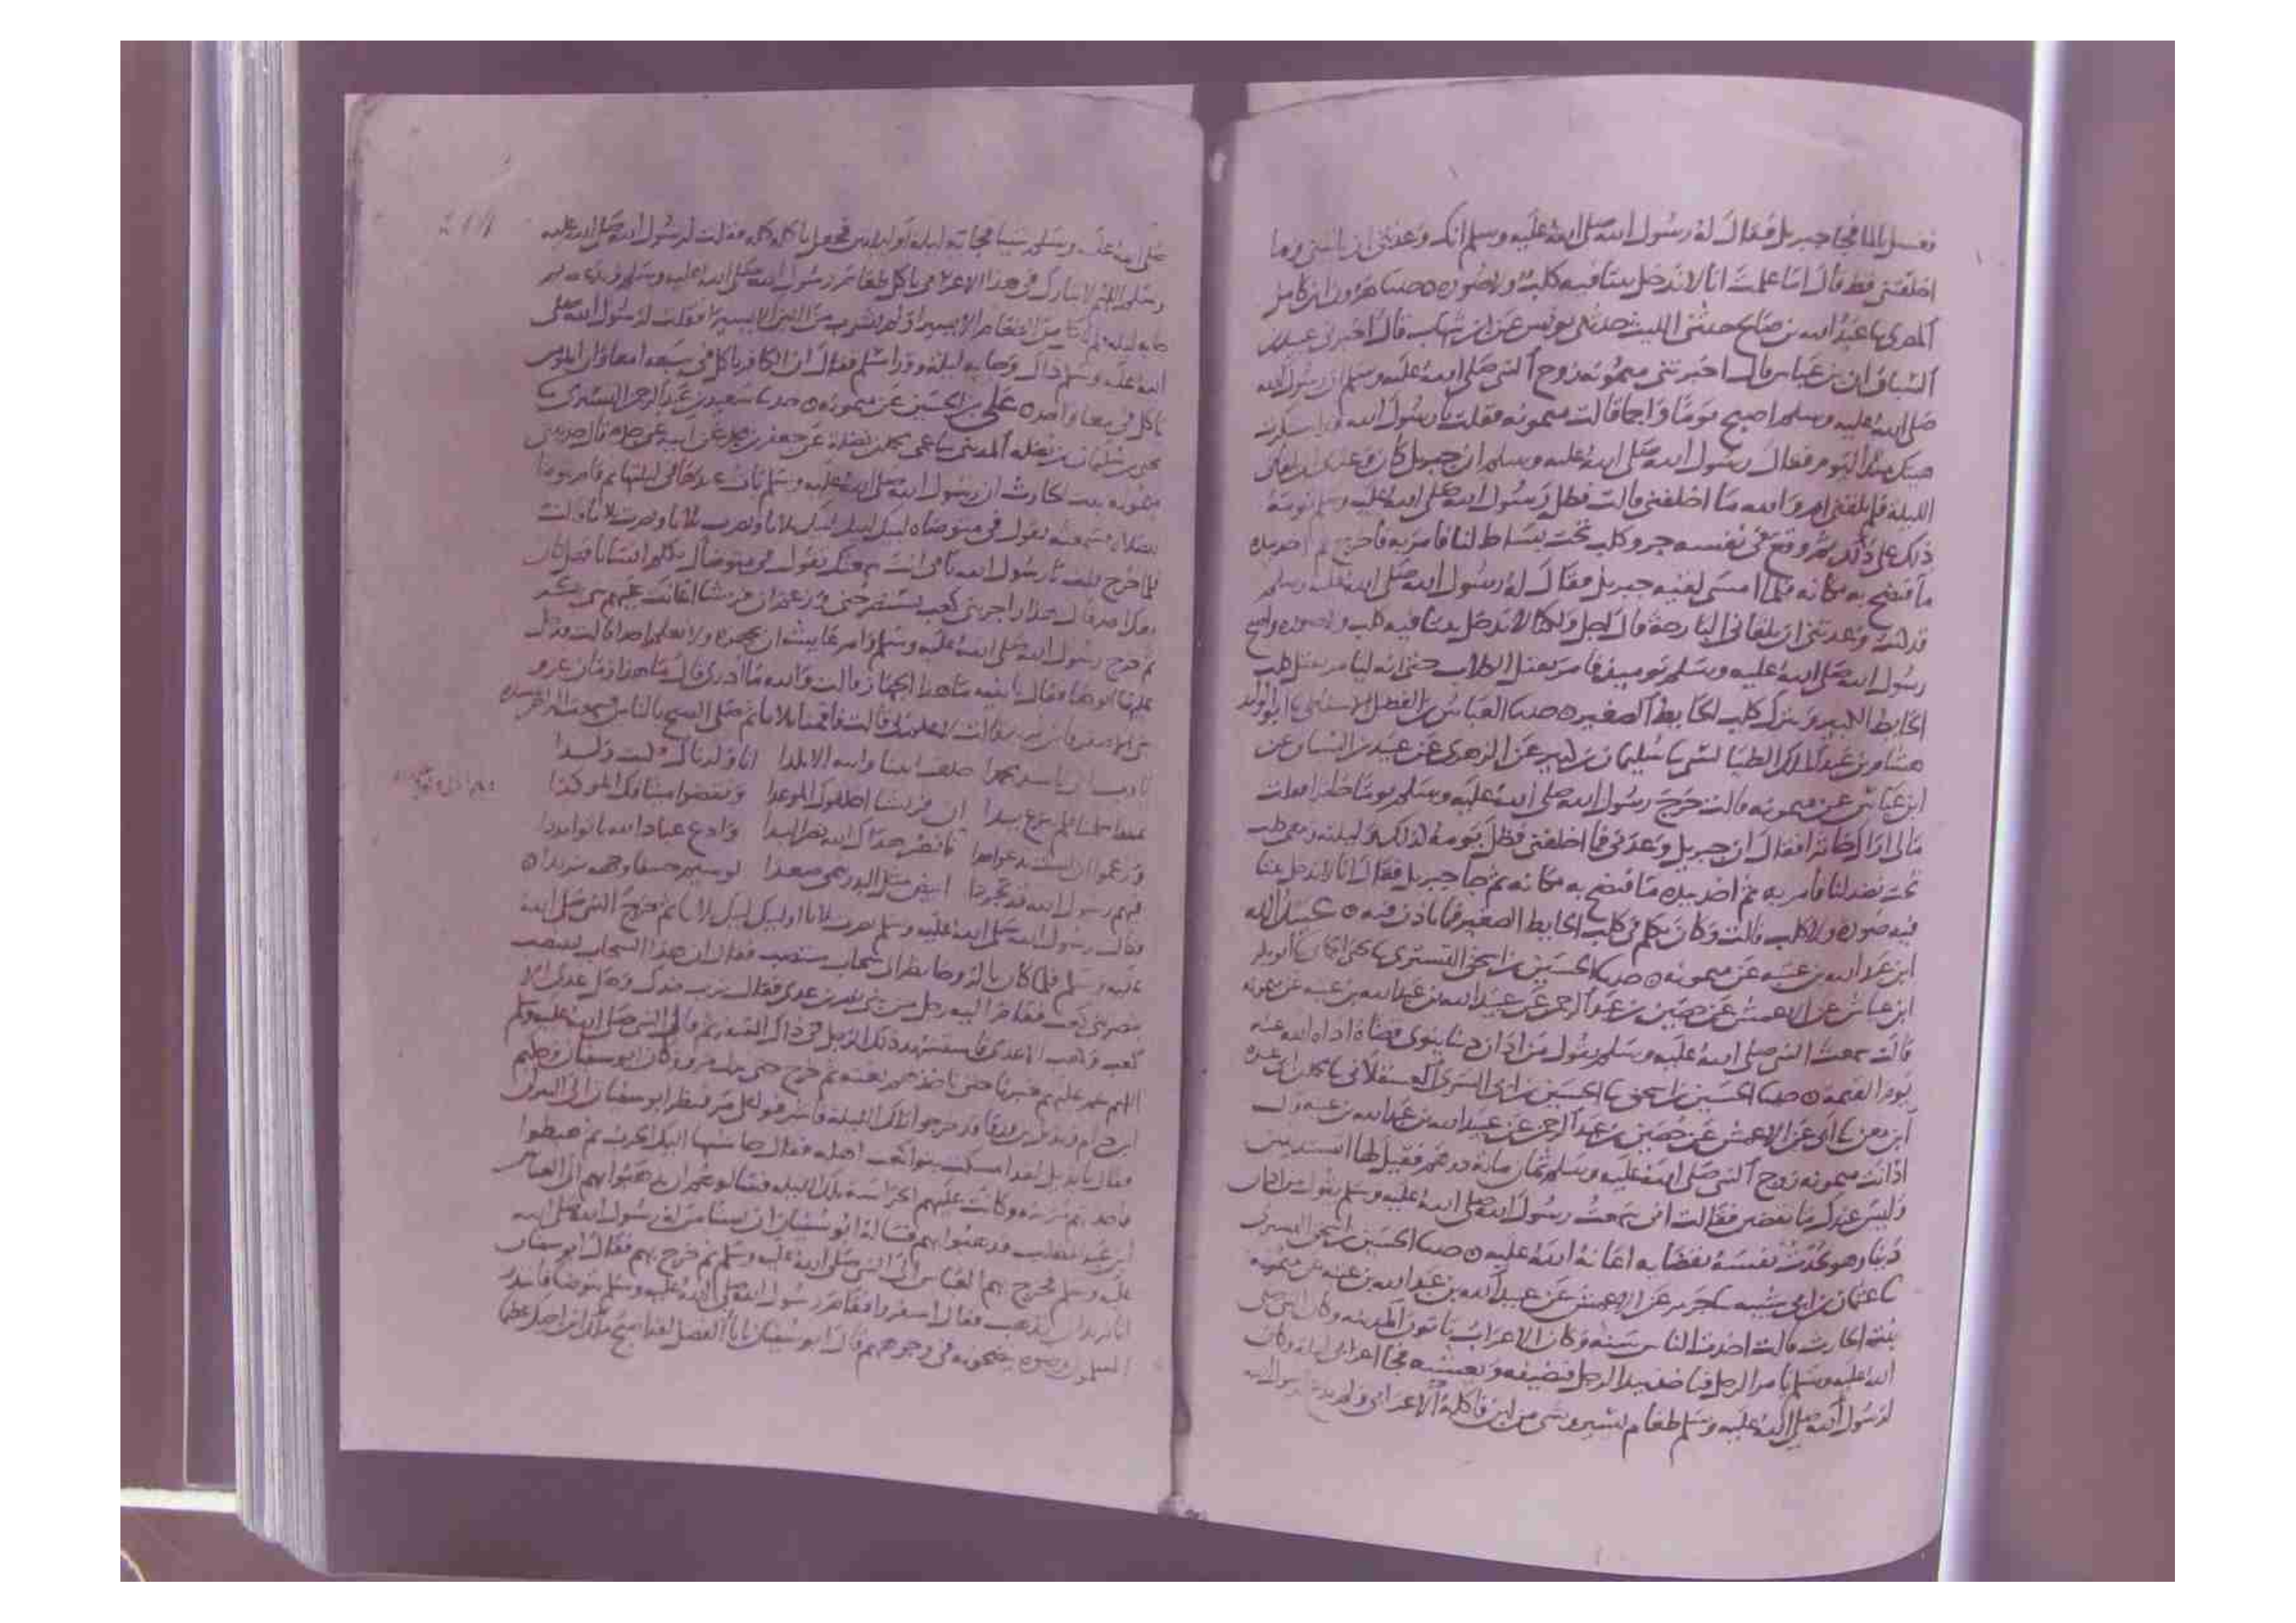 فغسل بالما فجا جبريل فقال له رسول الله صلى الله عليه وسلم انك وعدتني ان تاتيني وما
اخلفتني قط قال اما علمت انا لا ندخل بيتا فيه كلب ولا صورة حدثنا هرون بن كامل
المصري ثنا عبد الله بن صالح حدثني الليث حدثني يونس عن ابن شهاب قال اخبرني عبيد بن
السباق ان بن عباس قال اخبرتني ميمونه زوج النبي صلى الله عليه وسلم ان رسول الله
صلى الله عليه وسلم اصبح يوما واجما قالت ميمونه فقلت يا رسول الله استنكرت
هيئتك منذ اليوم فقال رسول الله صلى الله عليه وسلم ان جبريل كان وعدني ان يلقاني
الليلة فلم يلقني ام والله ما اخلفني قالت فظل رسول الله صلى الله عليه وسلم يومه
ذلك على ذلك ثم وقع في نفسه جرو كلب تحت بساط لنا فامر به فاخرج ثم اخذ بيده
ما فنضح به مكانه فلما امسى لقيه جبريل فقال له رسول الله صلى الله عليه وسلم
قد كنت وعدتني ان تلقاني البارحة قال اجل ولكنا لا ندخل بيتا فيه كلب ولا صورة فاصبح
رسول الله صلى الله عليه وسلم يوميذ فامر بقتل الكلاب حتى انه ليامر بقتل كلب
الحايط الكبير ويترك كلب الحايط الصغير حدثنا العباس بن الفضل الاسفاطي ثنا ابو الوليد
هشام بن عبد الملك الطيالسي ثنا سليمان بن كثير عن الزهري عن عبيد بن السباق عن
ابن عباس عن ميمونه قالت خرج رسول الله صلى الله عليه وسلم يوما خاثرا فقلت
مالي اراك خاثرا فقال ان جبريل وعدني فما اخلفني فظل يومه كذلك وليلته ومعه كلب
تحت نضد لنا فامر به ثم اخذ بيده ما فنضح به مكانه ثم جا جبريل فقال انا لا ندخل بيتا
فيه صورة ولا كلب قالت وكان يكلم في كلب الحايط الصغير فما ياذن فيه عبيد الله
ابن عبد الله بن عتبه عن ميمونه حدثنا الحسين بن اسحق التستري ثنا يحيى الحماني ثنا ابو بكر
ابن عياش عن الاعمش عن حصين بن عبد الرحمن عن عبيد الله بن عبد الله بن عتبه عن ميمونه
قالت سمعت النبي صلى الله عليه وسلم يقول من ادان دينا ينوي قضاه اداه الله عنه
يوم القيمة حدثنا الحسين بن اسحق ثنا الحسين بن ابي السري العسقلاني ثنا محمد بن ابي عبيدة
ابن معن ثنا ابي عن الاعمش عن حصين بن عبد الرحمن عن عبيد الله بن عبد الله بن عتبه قال
ادانت ميمونه زوج النبي صلى الله عليه وسلم ثمان ماية درهم فقيل لها اتستدينين
وليس عندك ما تقضي فقالت اني سمعت رسول الله صلى الله عليه وسلم يقول من ادان
دينا وهو يحدث نفسه بقضايه اعانه الله عليه حدثنا الحسين بن اسحق التستري
ثنا عثمان بن ابي شيبه ثنا جرير عن الاعمش عن عبيد الله بن عبد الله بن عتبه عن ميمونه
بنت الحارث قالت اجدب الناس سنة وكان الاعراب ياتون المدينه وكان النبي صلى
الله عليه وسلم يامر الرجل فياخذ بيد الرجل فيضيفه ويعشيه فجا اعرابي ليلة وكان
لرسول الله صلى الله عليه وسلم طعام يسير وشي من لبن فاكله الاعرابي ولم يدع لرسول الله
صلى الله عليه وسلم شيا فجا به ليلة او ليلتين فجعل ياكله كله فقلت لرسول الله صلى الله عليه
وسلم اللهم لا تبارك في هذا الاعرابي ياكل طعام رسول الله صلى الله عليه وسلم
به ليلة فلم ياكل من الطعام الا يسيرا ولم يشرب من اللبن الا يسيرا فقلت لرسول الله صلى
الله عليه وسلم ذاك وجا به ليلة وقد اسلم فقال ان الكافر ياكل في سبعة امعا وان المومن
ياكل في معا واحد علي بن الحسين عن ميمونه حدثنا سعيد بن عبد الرحمن التستري ثنا
يحيى بن سليمان بن نضلة المديني ثنا عمي محمد بن نضلة عن جعفر بن محمد عن ابيه عن جده قال حدثتني
ميمونه بنت الحارث ان رسول الله صلى الله عليه وسلم بات عندها في ليلتها ثم قام يتوضا
للصلاة فسمعته يقول في متوضاه لبيك لبيك لبيك ثلاثا ونصرت نصرت ثلاثا قالت
فلما خرج قلت يا رسول الله بابي انت سمعتك تقول في متوضاك تكلم انسانا فهل كان
معك احد قال هذا راجز بني كعب يستنصرخني ويزعم ان قريشا اعانت عليهم بني بكر
ثم خرج رسول الله صلى الله عليه وسلم وامر عايشة ان تجهزه ولا تعلم احدا قالت فدخل
عليها ابوها فقال يا بنيه ما هذا الجهاز قالت والله ما ادري قال ما هذا زمان غزو
بني الاصفر فقالت لا علم لي قالت فاقمنا ثلاثا ثم صلى الصبح بالناس فسمعت الراجز ينشده
يا رب اني ناشد محمدا حلف ابينا وابيه الاتلدا انا ولدناك وكنت ولدا
ثمة اسلمنا فلم ننزع يدا ان قريشا اخلفوك الموعدا ونقضوا ميثاقك الموكدا
وزعموا ان لست تدعو احدا فانصر هداك الله نصرا ايدا وادع عباد الله ياتوا مددا
فيهم رسول الله قد تجردا ابيض مثل البدر ينمي صعدا لو سيم خسفا وجهه تربدا
فقال رسول الله صلى الله عليه وسلم نصرت ثلاثا او لبيك لبيك ثلاثا ثم خرج النبي صلى الله
عليه وسلم فلما كان بالروحا نظر الى سحاب منتصب فقال ان هذا السحاب لينصب
بنصر بني كعب فقام اليه رجل من بني عدي فقال
كعب وهل عدي الا كعب فاستشهد ذلك الرجل في ذاك السفر ثم قال النبي صلى الله عليه وسلم
اللهم عم عليهم خبرنا حتى ناخذهم بغتة ثم خرج حتى نزل مرو وكان ابو سفيان وحكيم
ابن حزام وبديل بن ورقا قد خرجوا تلك الليلة فنظر ابو سفيان الى النيران
فقال يا بديل لقد امست بنو كعب اهله فقال حاشتها اليك الحرب ثم هبطوا
وكانت عليهم الحراسة تلك الليلة فسالوهم ان يذهبوا بهم الى العباس
ابن عبد المطلب فذهبوا بهم فساله ابو سفيان ان يستامن له رسول الله صلى الله
عليه وسلم فخرج بهم العباس الى النبي صلى الله عليه وسلم ثم خرج بهم فقال ابو سفيان
انا نريد ان نذهب فقال اسفروا فقام رسول الله صلى الله عليه وسلم يتوضا فابتدر
المسلمون وضوه ينضحونه في وجوههم قال ابو سفيان يا ابا الفضل لقد اصبح ملك ابن اخيك عظيما